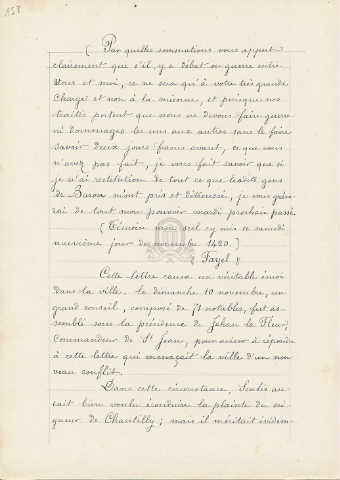 158
( Par quelles sommations vous appert
clairement que s'il y a débat ou guerre entre
vous et moi, ce ne sera qu'à votre très grande
charge et non à la mienne, et puisque nos
traités portent que nous ne devons faire guerre
ni dommages les uns aux autres sans le faire
savoir deux jours francs avant, ce que vous
n'avez pas fait, je vous fait savoir que si
je n'ai restitution de tout ce que lesdits gens
de Baron m'ont pris et détroussé, je vous
de tout mon pouvoir mardi prochain passé.
( Témoin mon scel cy mis ce samedi
neuvième jour de novembre 1420. )
" Fayel "
Cette lettre causa un véritable émoi
dans la ville. le dimanche 10 novembre, un
grand conseil, composé de 71 notables, fut as-
semblé sous la présidence de Jehan le Fleur,
Commandeur de St Jean, pour aviser à répondre
à cette lettre qui menaçait la ville d'un nou-
veau conflit.
Dans cette circonstance, Senlis au-
rait bien voulu éconduire la plainte du sei-
gneur de Chantilly ; mais il méritait évidem-